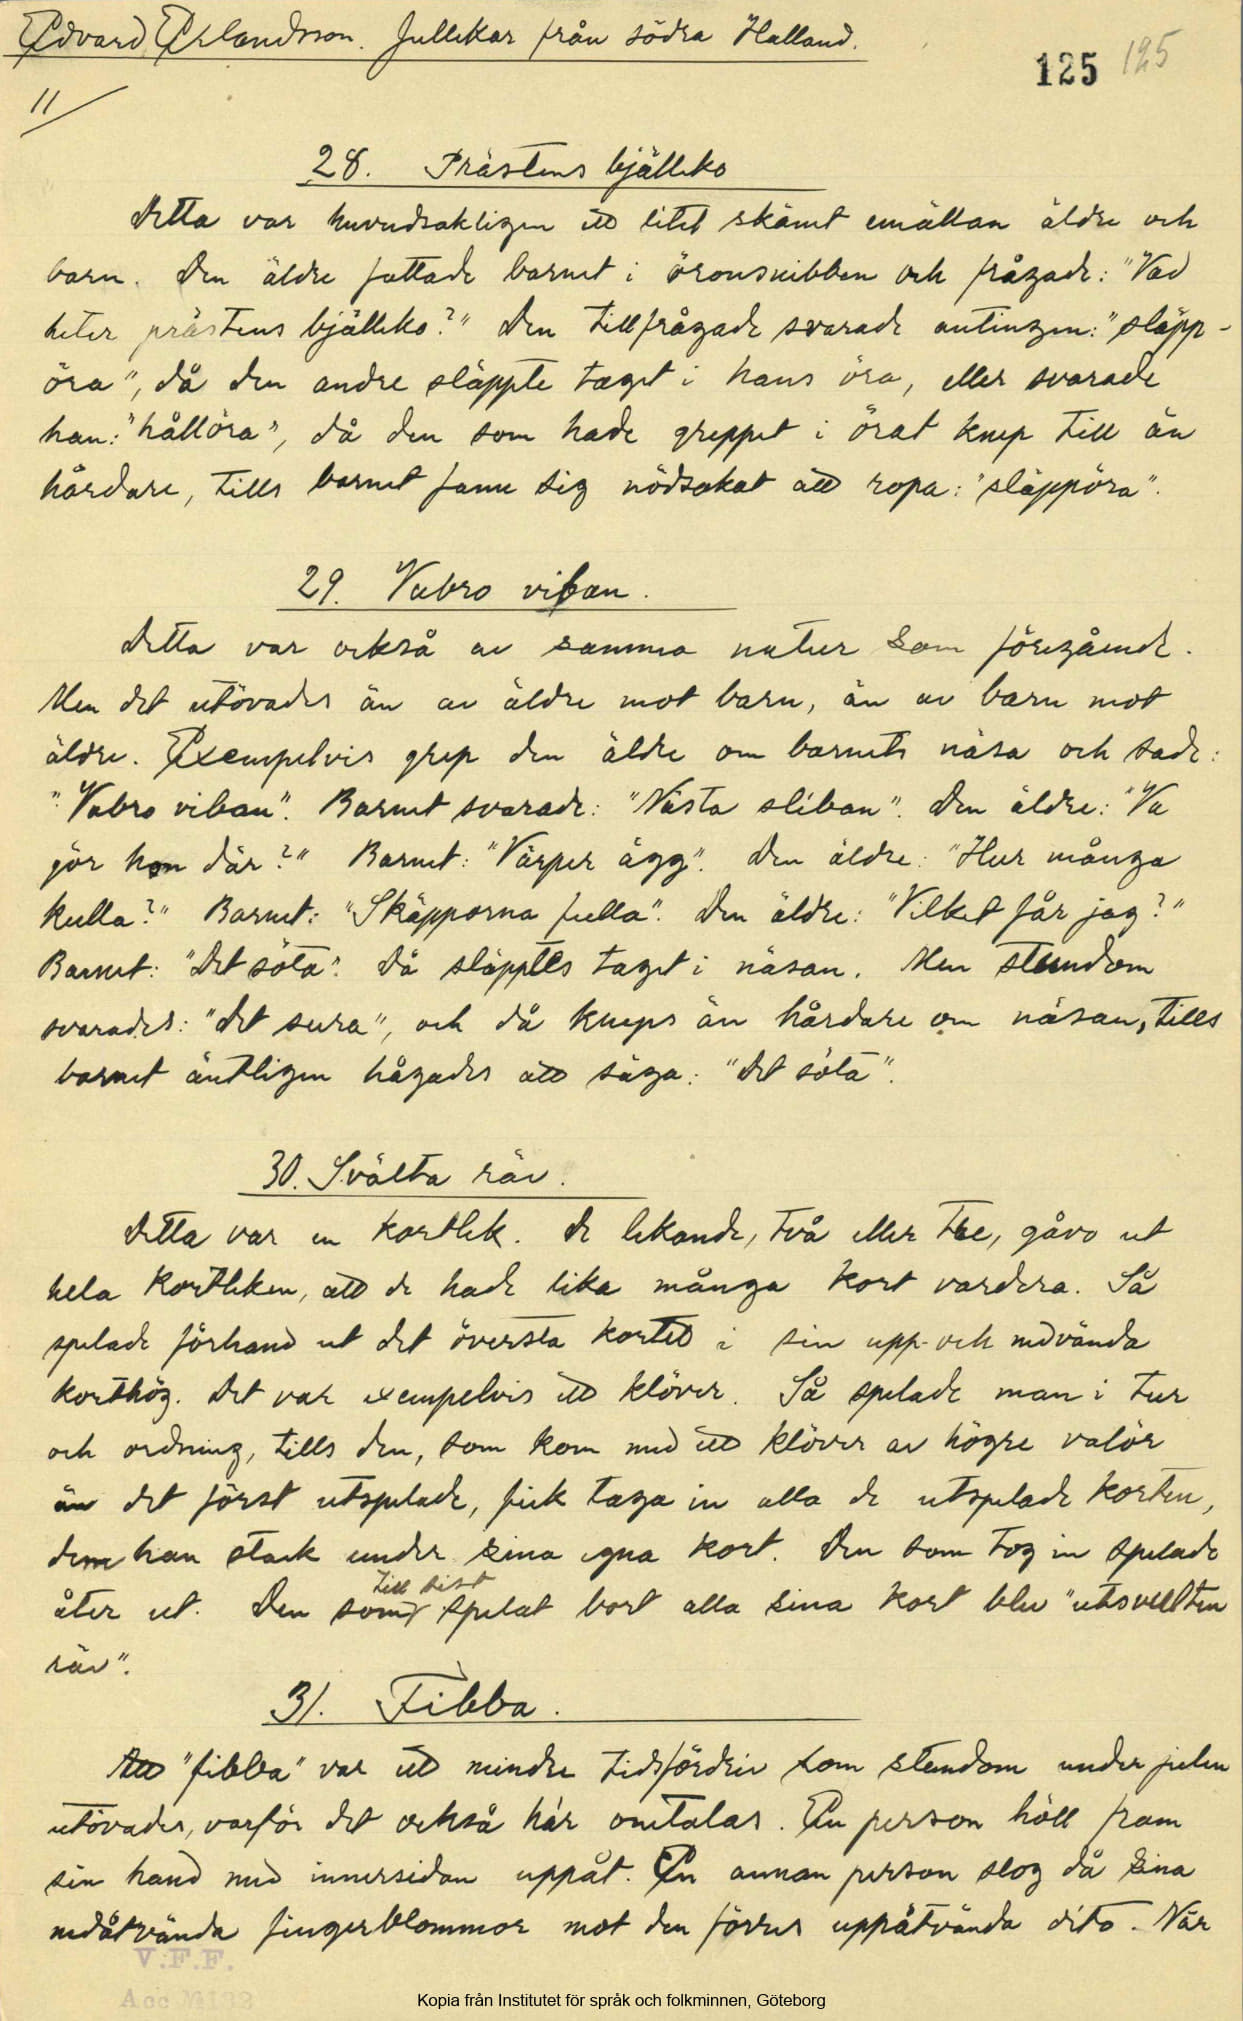 Edvard Erlandsson. Jullekar från södra Halland.
125 125
11
28. Prästens bjälleko
Detta var huvudsakligen ett litet skämt emällan äldre och
barn. Den äldre fattade barnet i öronsnibben och frågade: "Vad
heter prästens bjälleko?" Den tillfrågade svarade antingen: "släpp-
öra", då den andre släppte taget i hans öra, eller svarade
han: "hållöra", då den som hade greppet i örat knep till än
hårdare, tills barnet fann sig nödsakat att ropa: "släppöra".
29. Vabro viban.
Detta var också av samma natur som föregående.
Men det utövades än av äldre mot barn, än av barn mot
äldre. Exempelvis grep den äldre om barnets näsa och sade:
"Vabro viban". Barnet svarade: "Nästa sliban". Den äldre: "Va
gör hon där?" Barnet: "Värper ägg". Den äldre: "Hur många
kulla?" Barnet: "Skäpporna fulla". Den äldre: "Vilket får jag?"
Barnet: "Det söta". Då släpptes taget i näsan. Men stundom
svarades: "det sura", och då kneps än hårdare om näsan, tills
barnet äntligen hågades att säga: "det söta".
30. Svälta räv.
Detta var en kortlek. De lekande, två eller tre, gåvo ut
hela kortleken, att de hade lika många kort vardera. Så
spelade förhand ut det översta kortet i sin upp- och nedvända
korthög. Det var exempelvis ett klöver. Så spelade man i tur
och ordning, tills den, som kom med ett klöver av högre valör
än det först utspelade, fick taga in alla de utspelade korten,
dem han stack under sina egna kort. Den som tog in spelade
åter ut. Den som till sist spelat bort alla sina kort blev "utsvulten
räv".
31. Fibba.
Att "fibba" var ett mindre tidsfördriv som stundom under julen
utövades, varför det också här omtalas. En person höll fram
sin hand med innersidan uppåt. En annan person slog då sina
nedåtvända fingerblommor mot den förres uppåtvända dito. När
V.F.F.
Acc № 132
Kopia från Institutet för språk och folkminnen, Göteborg